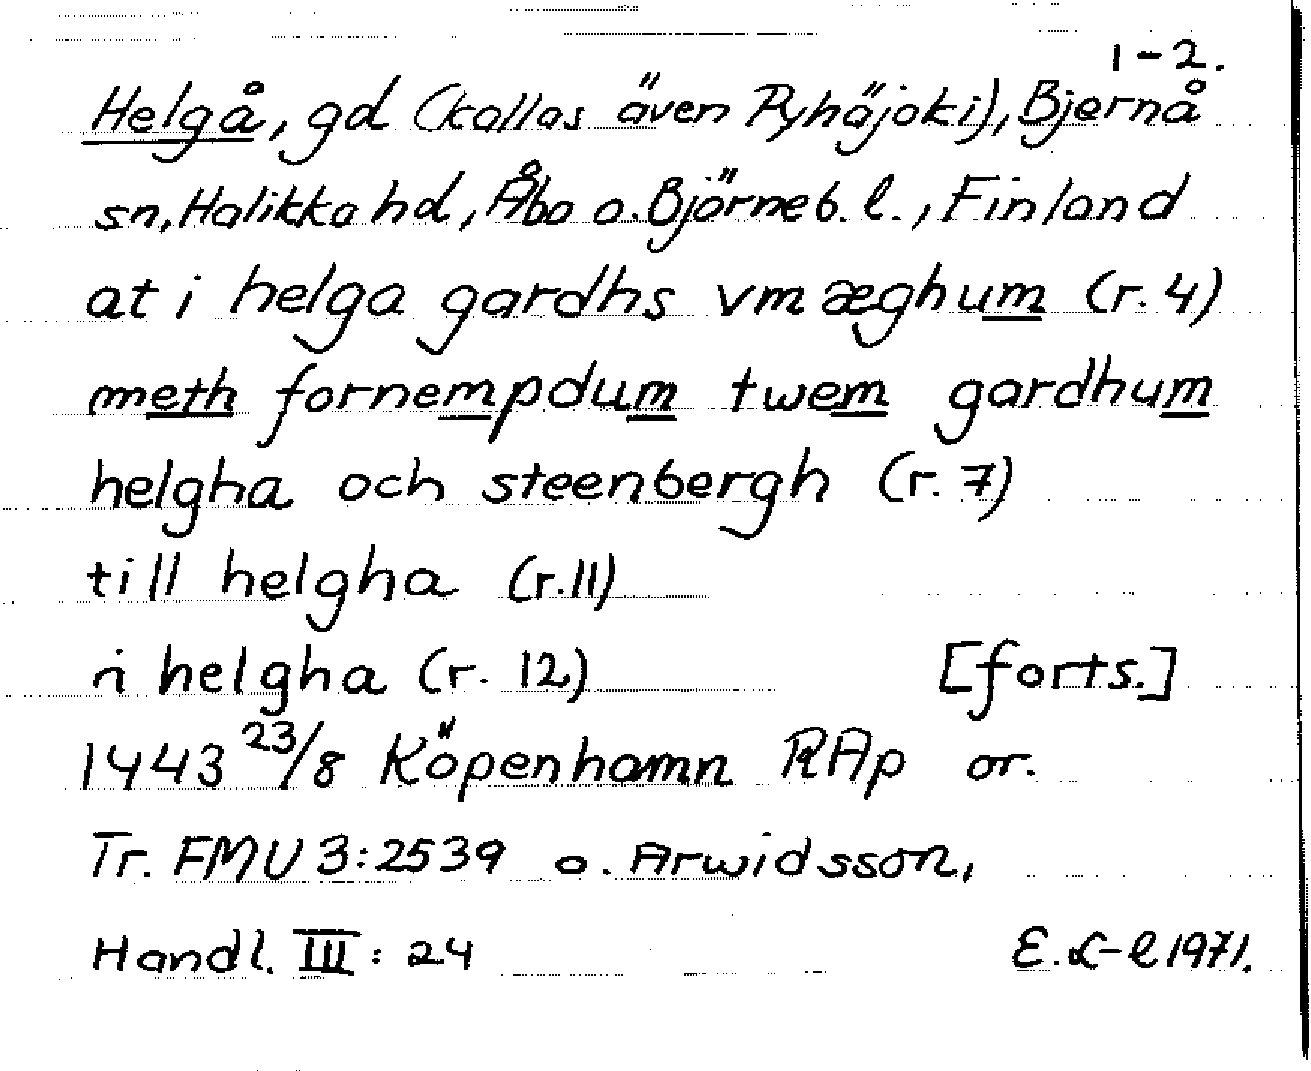 1-2.
Helgå, gd (kallas även Pyhäjoki), Bjernå
sn, Halikko hd, Åbo o. Björneb. l., Finland
at i helga gardhs vmæghum (r. 4)
meth fornempdum twem gardhum
helgha och steenbergh (r. 7)
till helgha (r. 11)
i helgha (r. 12) [forts.]
1443 23/8 Köpenhamn RAp or.
Tr. FMU 3:2539 o. Arwidsson,
Handl. III: 24 E. L-l 1971.